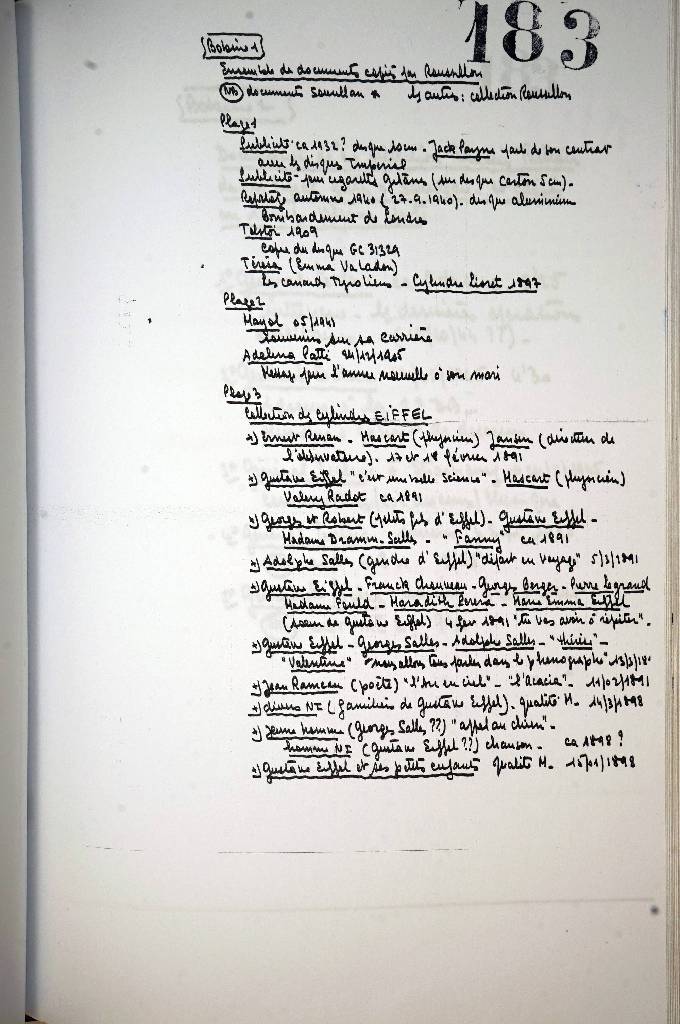 183
Bobine 1
Ensemble de documents copiés par Roussillon
NB documents Sevillan * les autres: collection Roussillon
Plage 1
Publicité ca 1932? disque 10cm - Jack Payne parle de son contrat
avec les disques Imperial
Publicité pour cigarettes gitanes (sur disque carton 5cm).
Reportage automne 1940 (27.9.1940). disque aluminium
Bombardement de Londres
Tolstoi 1909
Copie du disque GC 31329
Térésa (Emma Valadon)
Les canards Tyroliens - Cylindre Lioret 1897
Plage 2
Mayol 05/1941
Souvenirs sur sa Carrière
Adelina Patti 24/12/1905
Message pour l'année nouvelle à son mari
Plage 3
Collection des cylindres EIFFEL
*) Ernest Renan - Mascart (physicien) Jansen (directeur de
l'observatoire). 17 et 18 février 1891
*) Gustave Eiffel "c'est une belle science" - Mascart (physicien)
Valery Radot ca 1891
*) Georges et Robert (petits fils d'Eiffel) - Gustave Eiffel -
Madame Dramm-Salles - "Fanny" ca 1891
*) Adolphe Salles (gendre d'Eiffel) "départ en voyage" 5/3/1891
*) Gustave Eiffel - Franck Chauveau - Georges Berger - Pierre Legrand
Madame Fould - Haradith Pereira - Marie Emma Eiffel
(soeur de Gustave Eiffel) 4 fev 1891 "tu vas avoir à répéter".
*) Gustave Eiffel - Georges Salles - Adolph Salles - "Thérèse" -
"Valentine" "nous allons tous parler dans le phonographe" 13/3/18
*) Jean Rameau (poète) "l'Arc en ciel" - "l'Acacia" - 11/02/1891
*) divers NI (familiers de Gustave Eiffel). qualité M. 14/3/1898
*) Jeune homme (Georges Salles ??) "appel au chien" -
homme NI (Gustave Eiffel ??) chanson - ca 1898 ?
*) Gustave Eiffel et ses petits enfants qualité M. 15/01/1898